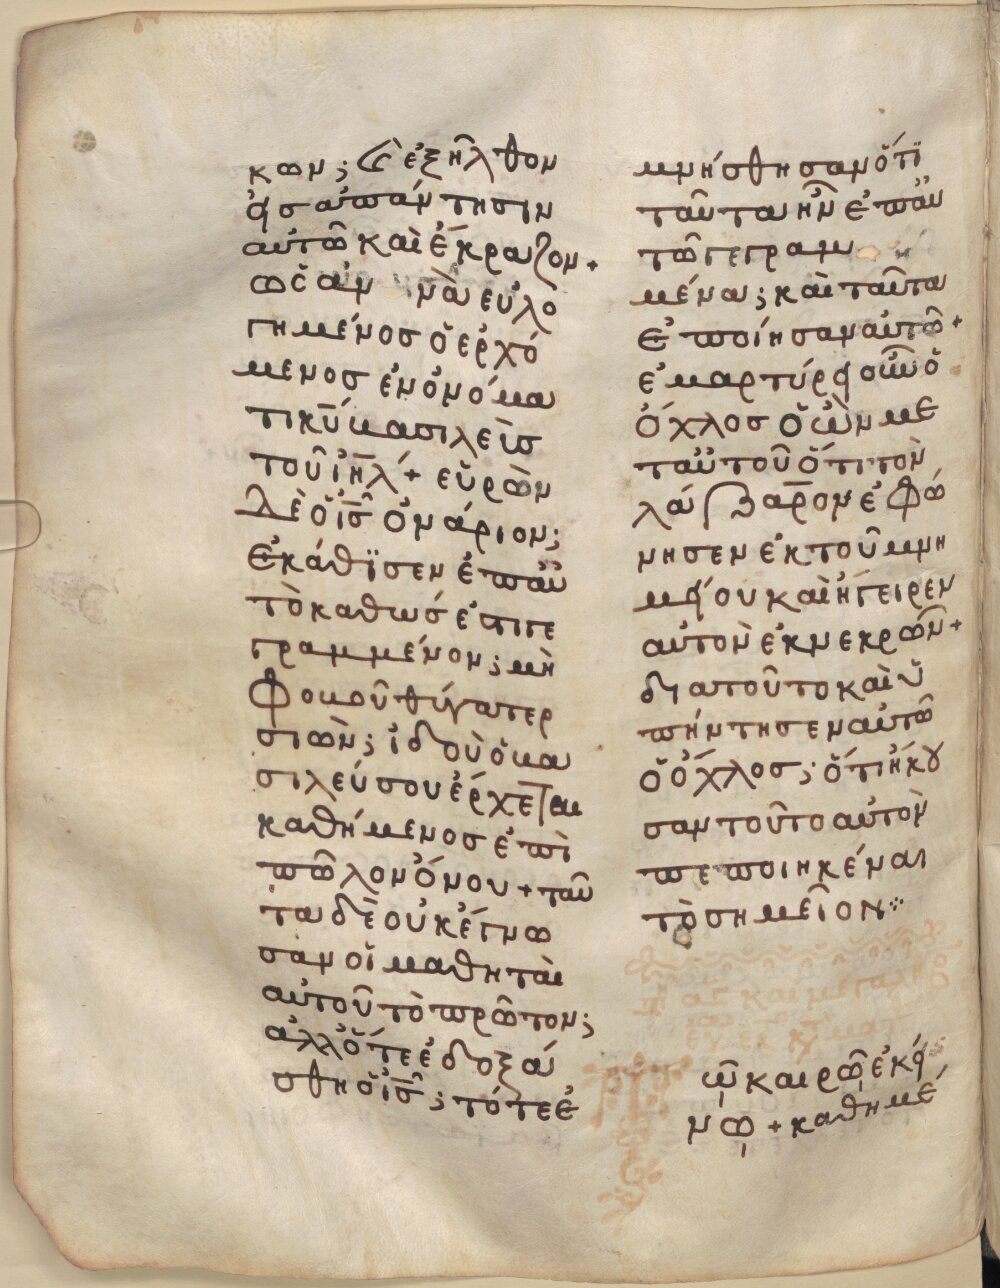 κων; κ(αὶ) ἐξῆλθον
εἰσ ἀπάντησιν
αὐτῶ καὶ ἔκραζον +
ὡσ ἀν νὰ εὐλο
γημένοσ ὁ ἐρχό
μενοσ ἐν ὀνόμα
τι κῡ βασιλεῖσ
τοῦ ἰη̄λ + εὑρὼν
δὲ ὁ ἰ̄σ ὀνάριον;
ἐκάθϊσεν ἐπαῦ
τὸ καθὼσ ἐστι γε
γραμμένον; μὴ
φοβοῦ θύγατερ
σιὼν; ἰδοὺ ὁ βα
σιλεύσ σου ἔρχεται
καθήμενοσ ἐπὶ
πῶλον ὄνου + ταῦ
τα δὲ οὐκ ἔγνω
σαν οἱ μαθηταὶ
αὐτοῦ τὸ πρῶτον;
ἀλλ ὅτε ἐδοξά
σθη ὁ ἰ̄σ; τότε ἐ
μνήσθησαν ὅτϊ
ταῦτα ἦν ἐπαὐ
τῶ γεγραμ
μένα; καὶ ταῦτα
ἐποίησαν αὐτῶ +
ἐμαρτύρει οὖν ὁ
ὄχλοσ ὁ ὢν με
τ αὐτοῦ ὅτι τὸν
λάζαρον ἐφώ
νησεν ἐκ τοῦ μνη
μείου καὶ ἤγειρεν
αὐτὸν ἐκ νεκρῶν +
διατοῦτο καὶ ὑ
πήντησεν αὐτῶ
ὁ ὄχλοσ; ὅτι ἤκου
σαν τοῦτο αὐτὸν
πεποιηκέναι
τὸ σημεῖον
ῶ καιρῶ ἐκεί
νω + καθημέ